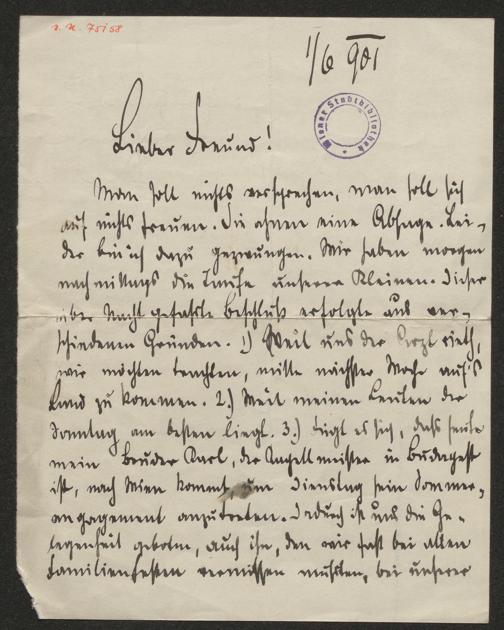 z. N. 75/58
1/6 901
Wiener Stadtbibliothek
Lieber Freund!
Man soll nichts versprechen, man soll sich
auf nichts freuen. Sie ahnen eine Absage. Lei-
der bin ich dazu gezwungen. Wir haben morgen
nachmittags die Taufe unserer Kleinen. Dieser
über Nacht gefasste Beschluß erfolgte aus ver-
schiedenen Gründen. 1.) Weil uns der Arzt rieth,
wir möchten trachten, mitte nächster Woche auf's
Land zu kommen. 2.) Weil meinen Leuten der
Sonntag am besten liegt. 3.) fügt es sich, dass heute
mein Bruder Karl, der Kapellmeister in Budapest
ist, nach Wien kommt, um Dienstag sein Sommer-
engagement anzutreten. Dadurch ist uns die Ge-
legenheit geboten, auch ihn, den wir fast bei allen
Familienfesten vermissen mussten, bei unserer